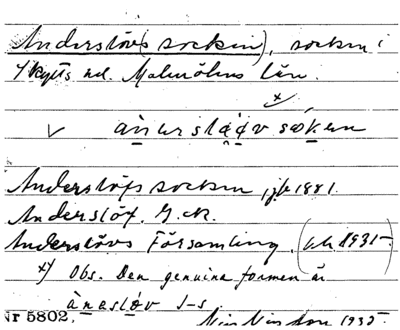 Anderslövs (socken), socken i
Skytts hd. Malmöhus län.
x)
✓ ànerslǫ̀ǫ́v sǿken
Anderslöfs socken, jb 1881.
Anderslöf, G.ck.
Anderslövs Församling,
x) Obs. Den genuina formen är
ànesløv
Nr 5802.
1935